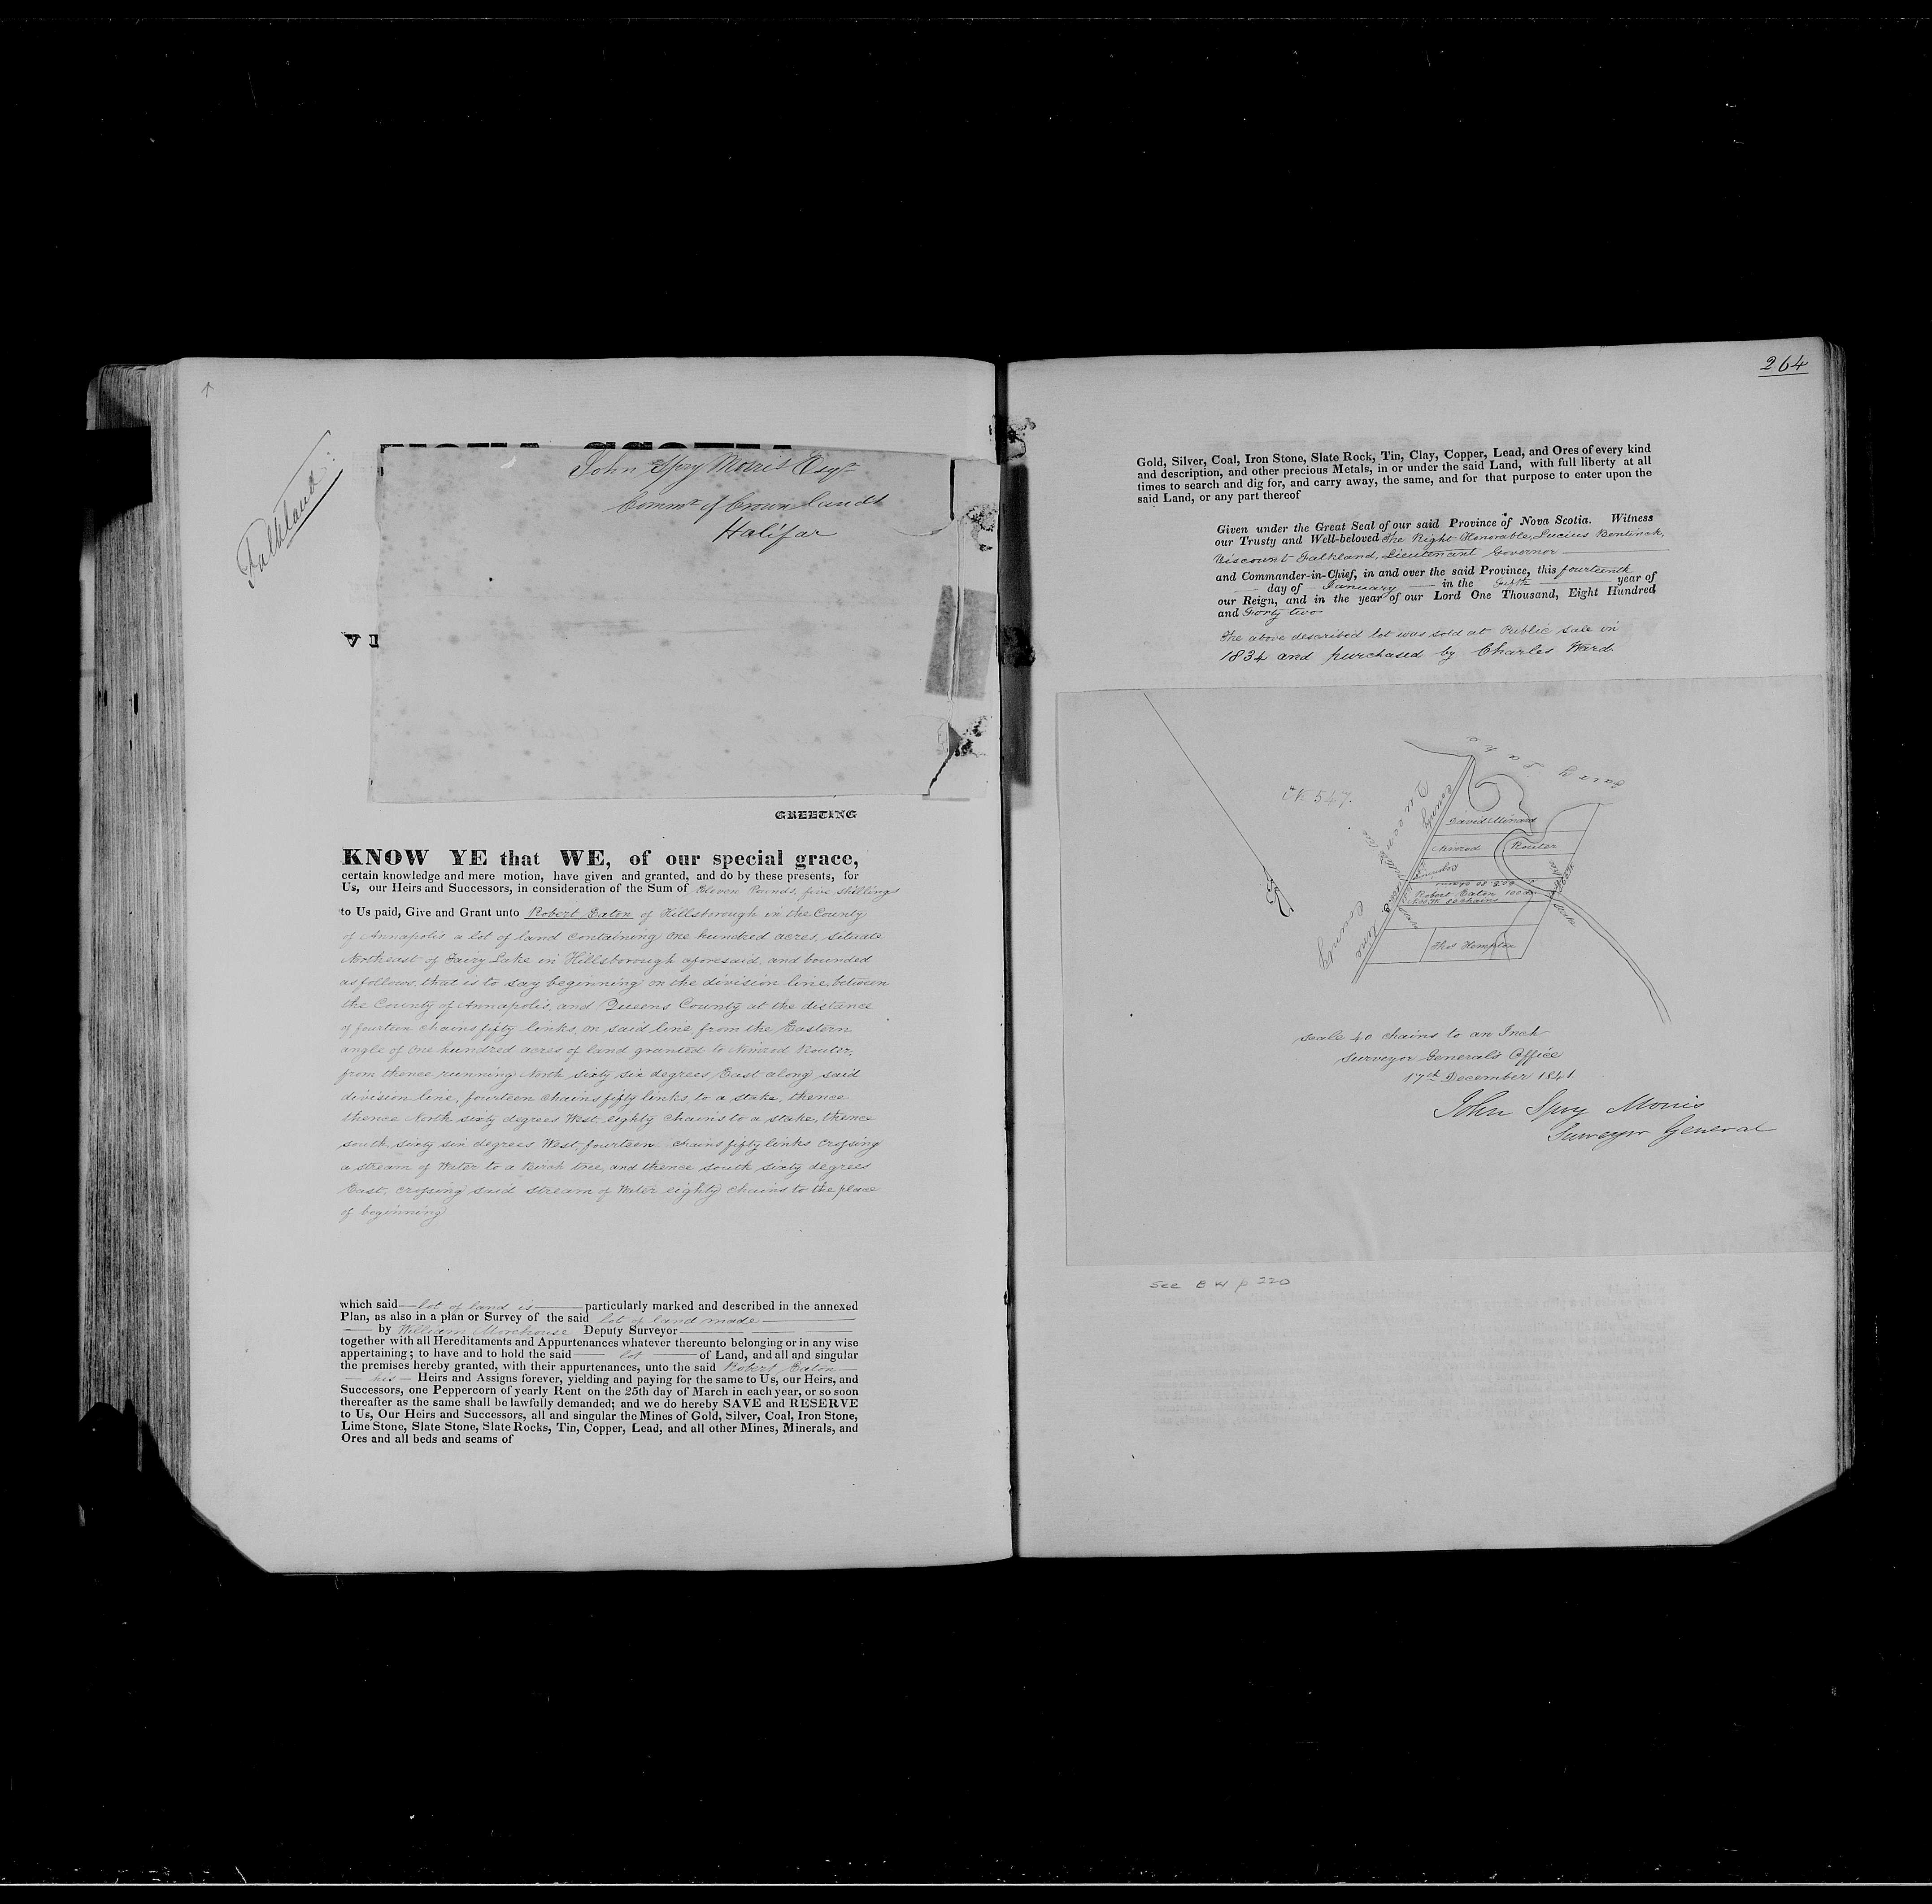 Falkland
John Spry Morris Esqr
Commr of Crown Lands
Halifax
GREETING
KNOW YE that WE, of our special grace,
certain knowledge and mere motion, have given and granted, and do by these presents, for
Us, our Heirs and Successors, in consideration of the Sum of Eleven Pounds, five shillings
to Us paid, Give and Grant unto Robert Eaton of Hillsborough in the County
of Annapolis a lot of land containing one hundred acres, situate
Northeast of Fairy Lake in Hillsborough aforesaid, and bounded
as follows, that is to say beginning on the division line between
the County of Annapolis, and Queens County at the distance
of fourteen chains fifty links, on said line from the Eastern
angle of one hundred acres of land granted to Nimrod Router,
from thence running North sixty six degrees East along said
division line, fourteen chains fifty links to a stake, thence
thence North sixty degrees West eighty chains to a stake, thence
south sixty six degrees West, fourteen chains fifty links crossing
a stream of Water to a Birch tree, and thence south sixty degrees
East, crossing said stream of Water eighty chains to the place
of beginning
which said lot of land is particularly marked and described in the annexed
Plan, as also in a plan or Survey of the said lot of land made
by William Morehouse Deputy Surveyor
together with all Hereditaments and Appurtenances whatever thereunto belonging or in any wise
appertaining; to have and to hold the said lot of Land, and all and singular
the premises hereby granted, with their appurtenances, unto the said Robert Eaton
his Heirs and Assigns forever, yielding and paying for the same to Us, our Heirs, and
Successors, one Peppercorn of yearly Rent on the 25th day of March in each year, or so soon
thereafter as the same shall be lawfully demanded; and we do hereby SAVE and RESERVE
to Us, Our Heirs and Successors, all and singular the Mines of Gold, Silver, Coal, Iron Stone,
Lime Stone, Slate Stone, Slate Rocks, Tin, Copper, Lead, and all other Mines, Minerals, and
Ores and all beds and seams of
264
Gold, Silver, Coal, Iron Stone, Slate Rock, Tin, Clay, Copper, Lead, and Ores of every kind
and description, and other precious Metals, in or under the said Land, with full liberty at all
times to search and dig for, and carry away, the same, and for that purpose to enter upon the
said Land, or any part thereof
Given under the Great Seal of our said Province of Nova Scotia. Witness
our Trusty and Well-beloved The Right Honorable, Lucius Bentinck,
Viscount Falkland, Lieutenant Governor
and Commander-in-Chief, in and over the said Province, this fourteenth
day of January in the fifth year of
our Reign, and in the year of our Lord One Thousand, Eight Hundred
and Forty two
The above described lot was sold at Public Sale in
1834 and purchased by Charles Ward.
Fairy Lake
547.
Queens County
County Line
David Minard
Nimrod Router
Robert Eaton 100 a
80 chains
Thos Hempton
Stake
Scale 40 chains to an Inch
Surveyor General's Office
17th December 1841.
John Spry Morris
Surveyor General
See B W p 220